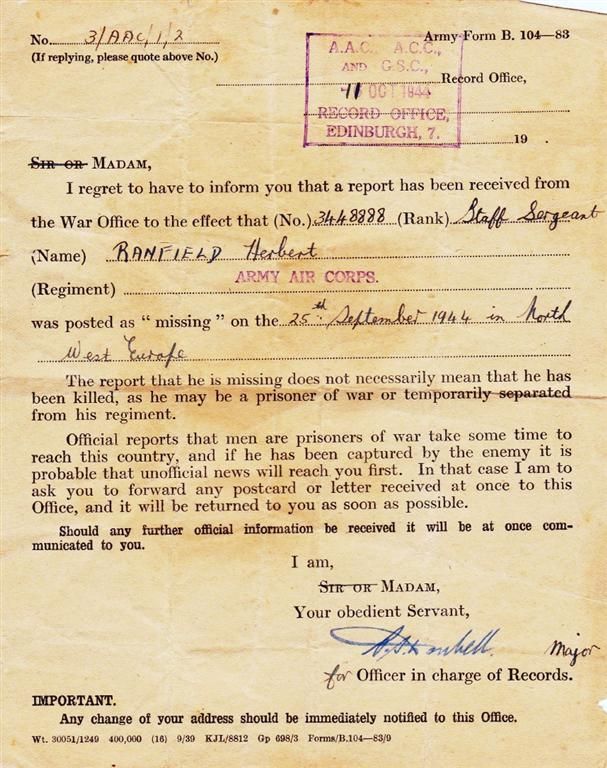 No. 3/AAC/1/2
Army Form B. 104—83
(If replying, please quote above No.)
A.A.C., A.C.C.,
AND G.S.C.,
Record Office,
11 OCT 1944
RECORD OFFICE,
EDINBURGH, 7.
19 .
SIR OR MADAM,
I regret to have to inform you that a report has been received from
the War Office to the effect that (No.) 3448888 (Rank) Staff Sergeant
(Name) RANFIELD Herbert
ARMY AIR CORPS.
(Regiment)
was posted as “ missing ” on the 25th September 1944 in North
West Europe
The report that he is missing does not necessarily mean that he has
been killed, as he may be a prisoner of war or temporarily separated
from his regiment.
Official reports that men are prisoners of war take some time to
reach this country, and if he has been captured by the enemy it is
probable that unofficial news will reach you first. In that case I am to
ask you to forward any postcard or letter received at once to this
Office, and it will be returned to you as soon as possible.
Should any further official information be received it will be at once com-
municated to you.
I am,
SIR OR MADAM,
Your obedient Servant,
Major
for Officer in charge of Records.
IMPORTANT.
Any change of your address should be immediately notified to this Office.
Wt. 30051/1249 400,000 (16) 9/39 KJL/8812 Gp 698/3 Forms/B.104—83/9